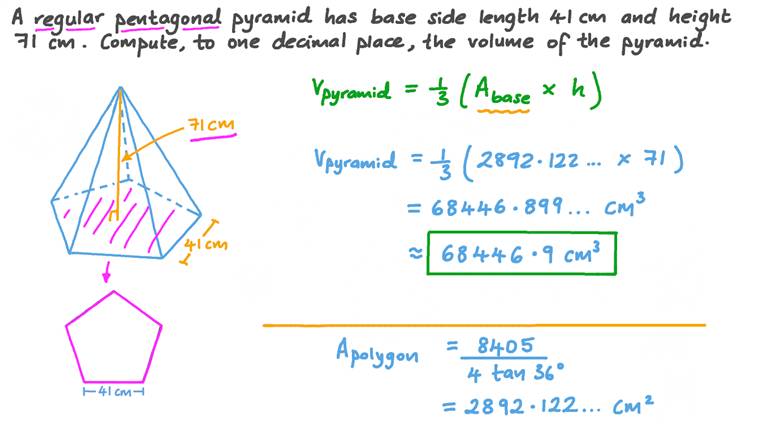 A regular pentagonal pyramid has base side length 41 cm and height
71 cm. Compute, to one decimal place, the volume of the pyramid.
71 cm
41 cm
41 cm
Vpyramid = 1/3 (Abase × h)
Vpyramid = 1/3 (2892·122... × 71)
= 68446·899... cm³
≈ 68446·9 cm³
Apolygon = 8405 / 4 tan 36°
= 2892·122... cm²